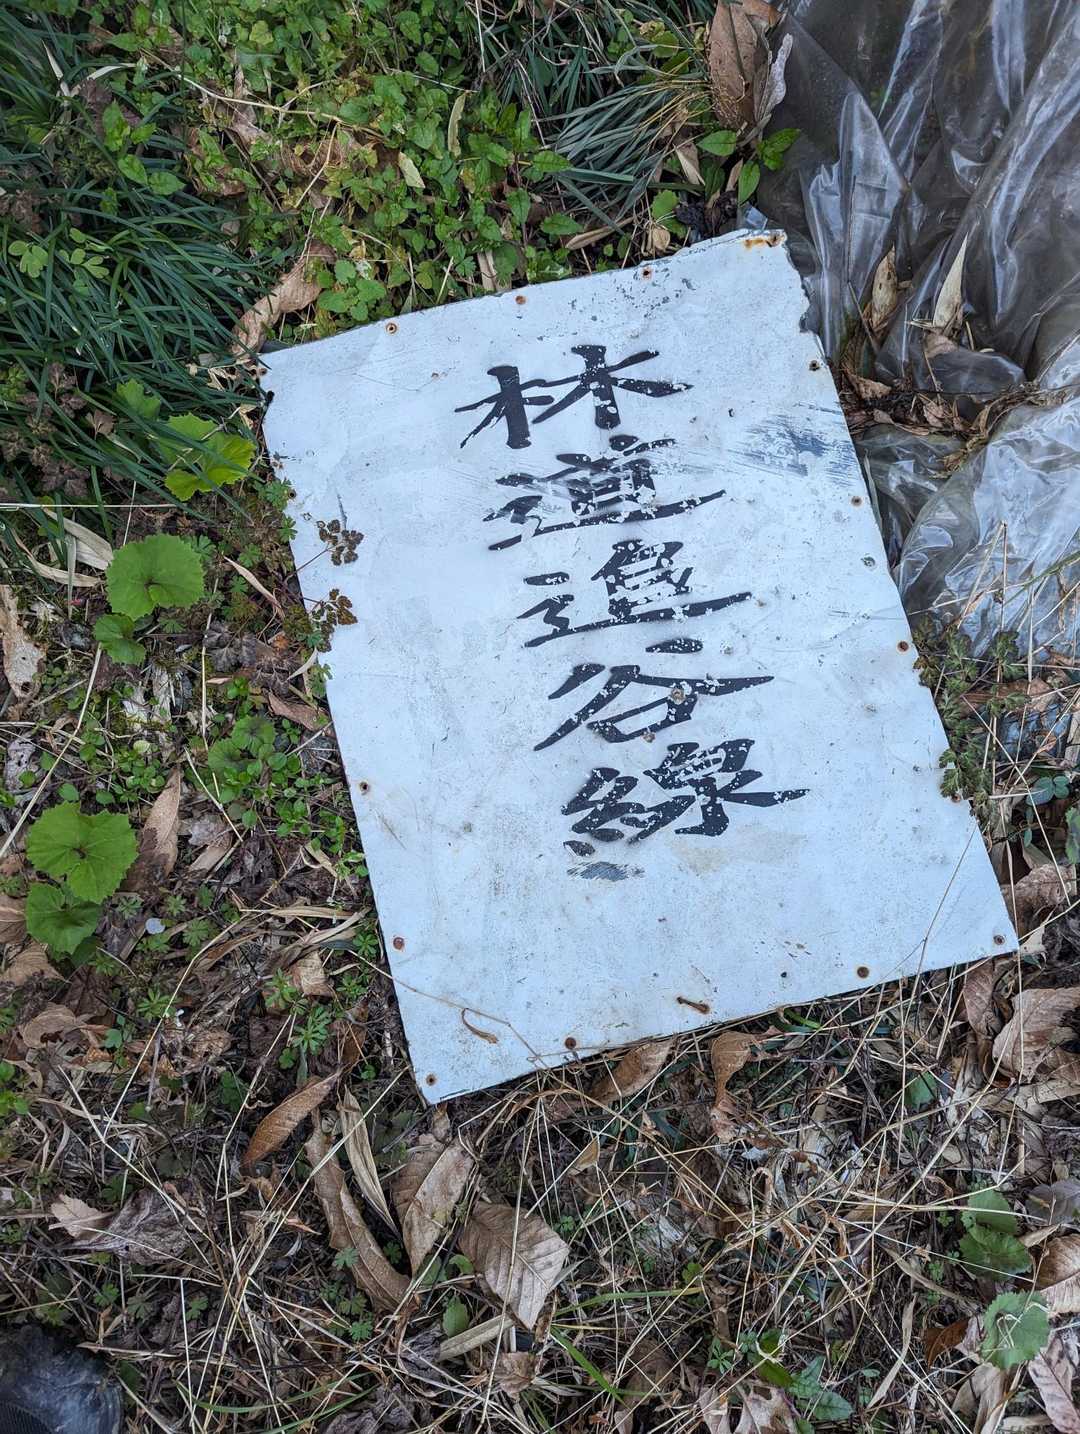 林道追谷線